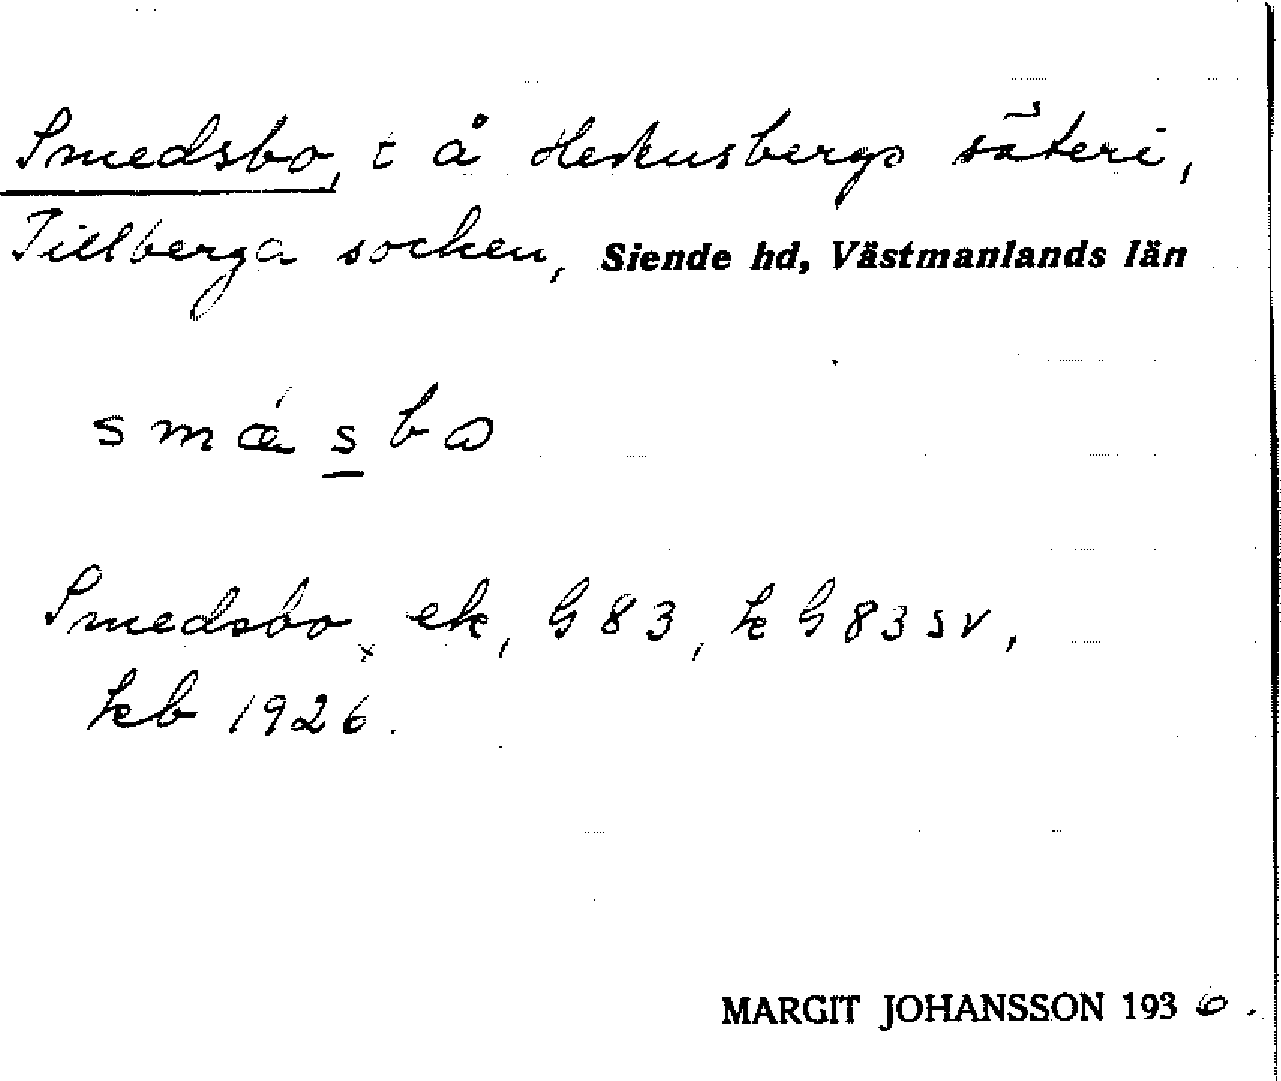 Smedsbo, t å Hedensbergs säteri,
Tillberga socken, Siende hd, Västmanlands län
smǽsbω
Smedsbo, ek, G 83, k G 83 sv,
kb 1926.
MARGIT JOHANSSON 1936.